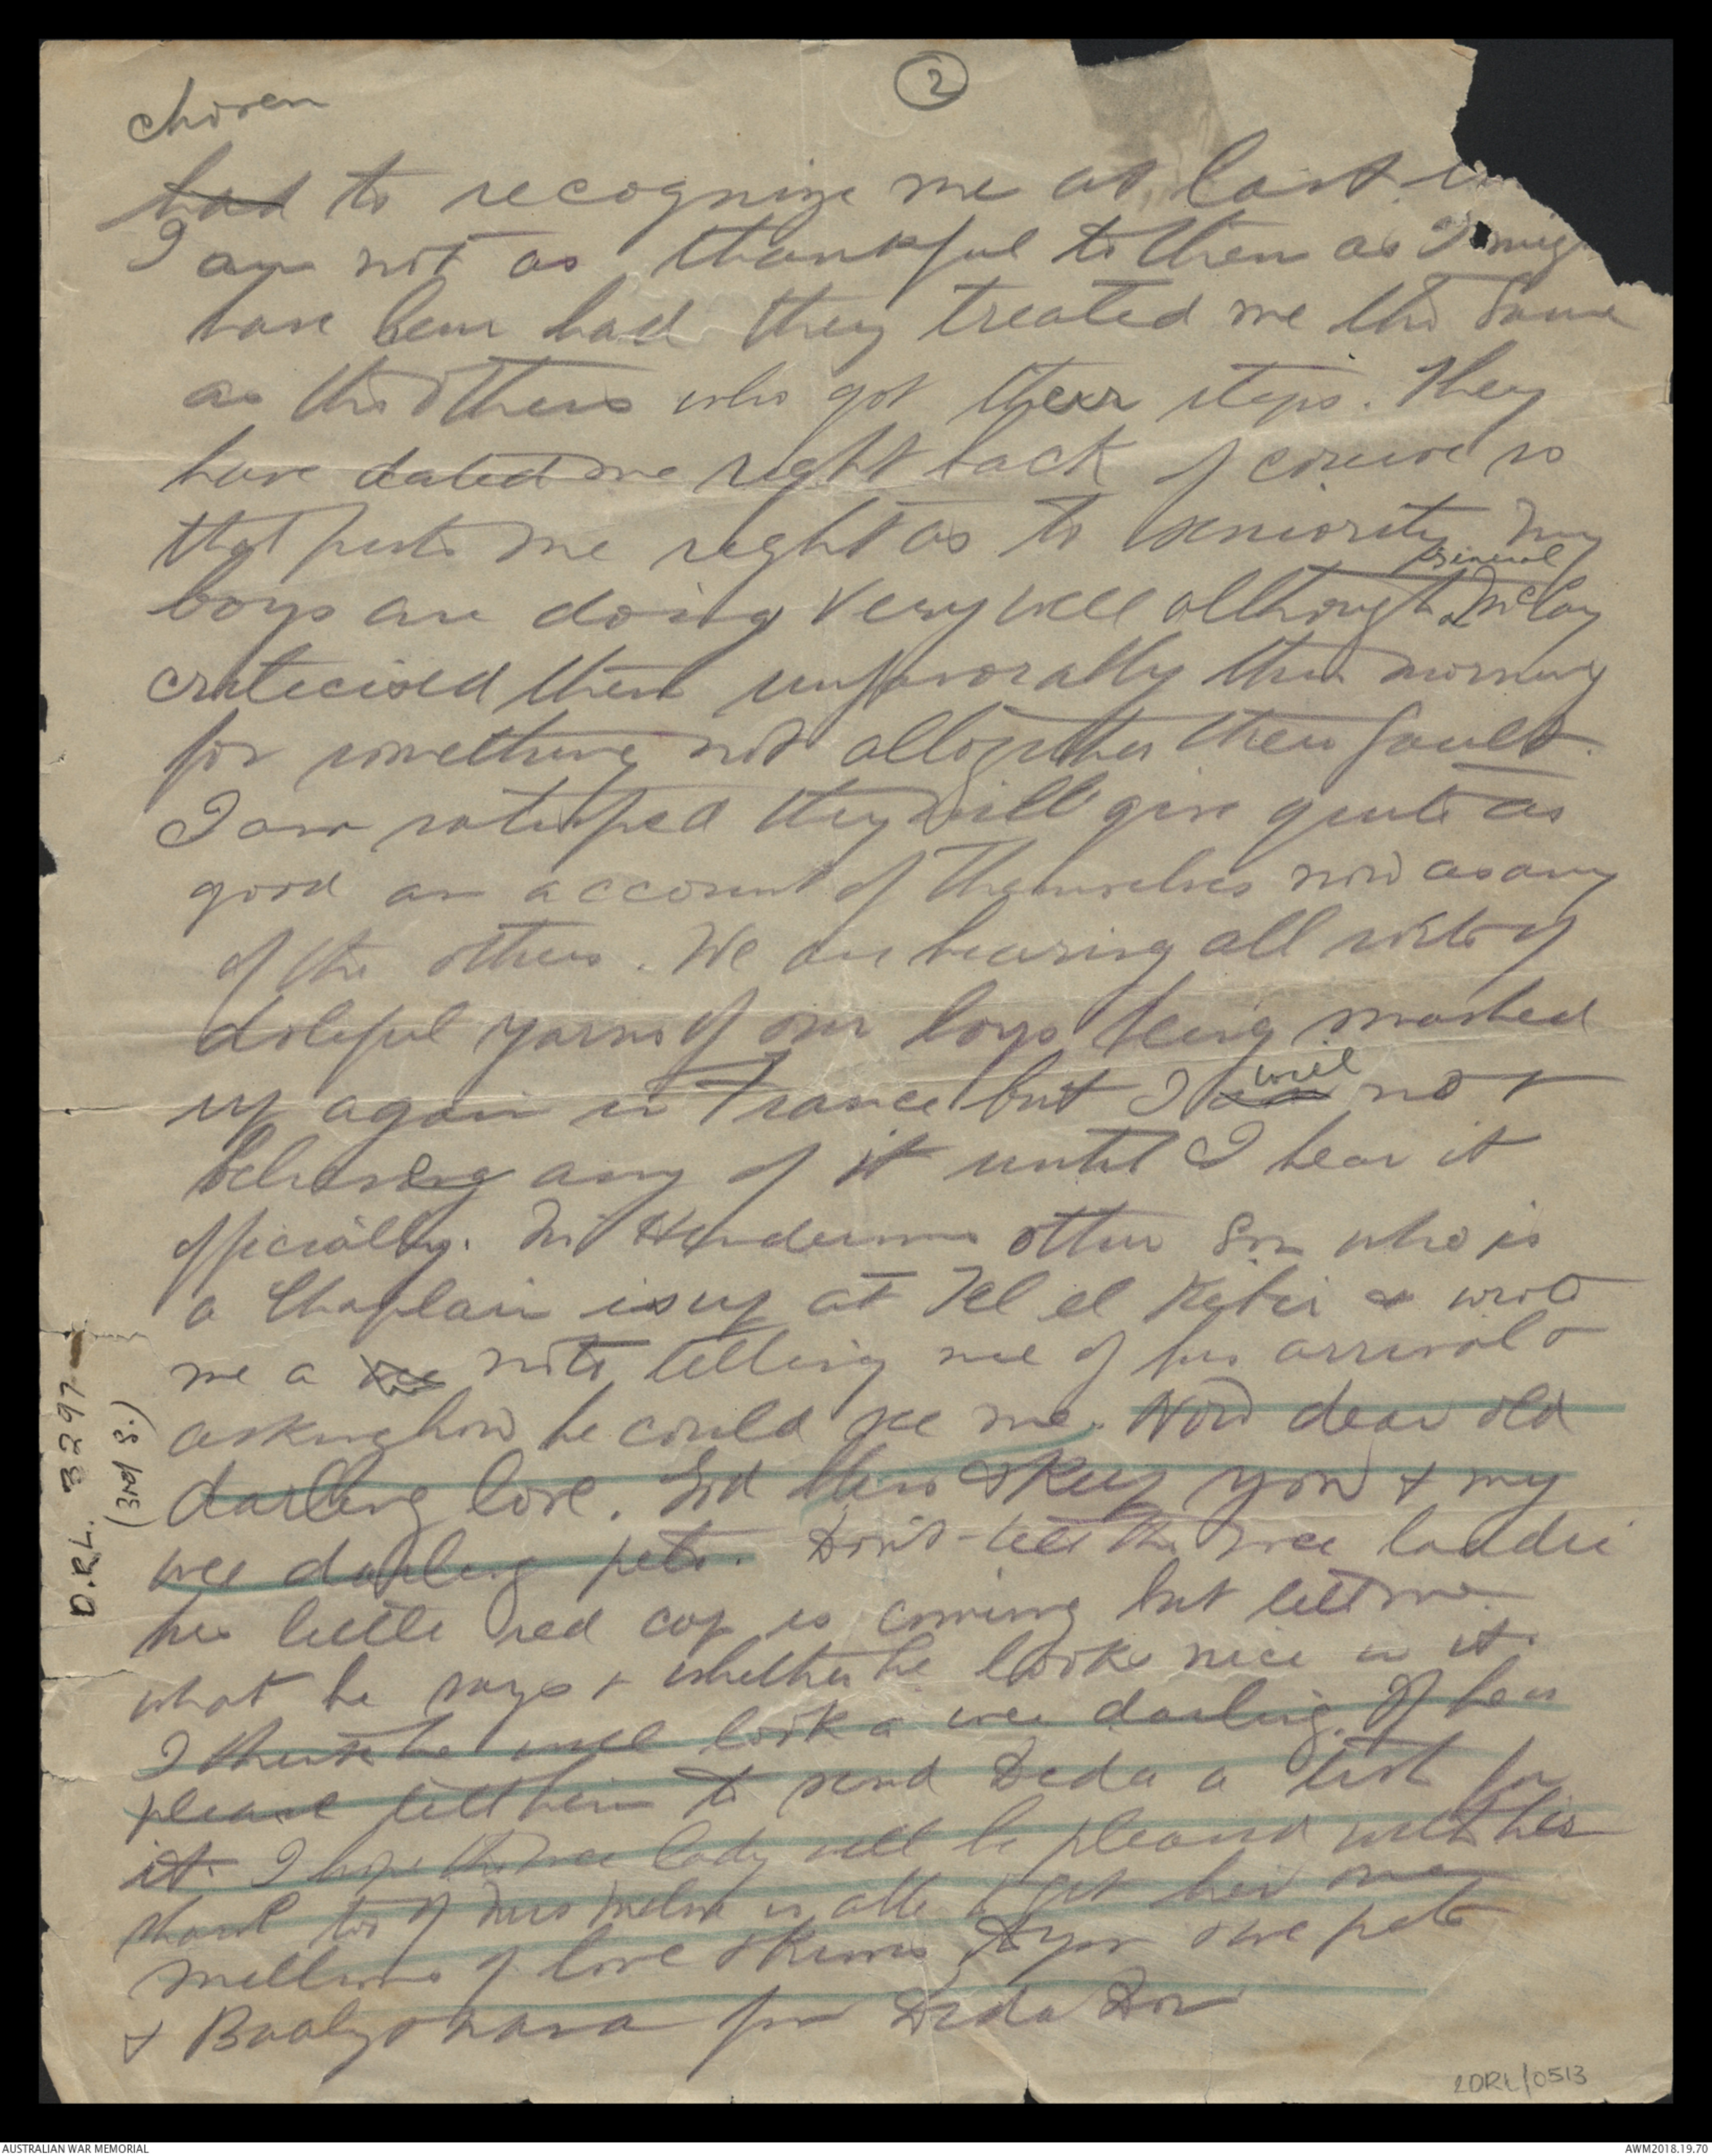 2
chosen
had to recognize me at last
I am not as thankful to them as I mig
have been had they treated me the same
as the others who got their steps. They
have dated me right back of course so
that puts me right as to seniority. My
General
boys are doing very well although McCay
criticised them unfavorably this morning
for something not altogether their fault.
I am satisfied they will give quite as
good an account of themselves now as any
of the others. We are hearing all sorts of
doleful yarns of our boys being smashed
will
up again in France but I am not
believing any of it until I hear it
officially. Mr Hendersons other son who is
a Chaplain is up at Tel el Kebir & wrote
me a note telling me of his arrival &
asking how he could see me. Now dear old
darling love. God bless & keep you & my
wee darling pets. Don't tell the wee laddie
his little red cap is coming but tell me
what he says & whether he looks nice in it.
I think he will look a wee darling. If he is
please tell him to send Deda a kish for
it. I hope the wee lady will be pleased with her
shawl too if Miss is able to get her one
Millions of love & kisses to you own pets
& for Deda Don
D.R.L. 3297
(3rd S.)
2DRL/0513
AUSTRALIAN WAR MEMORIAL
AWM2018.19.70